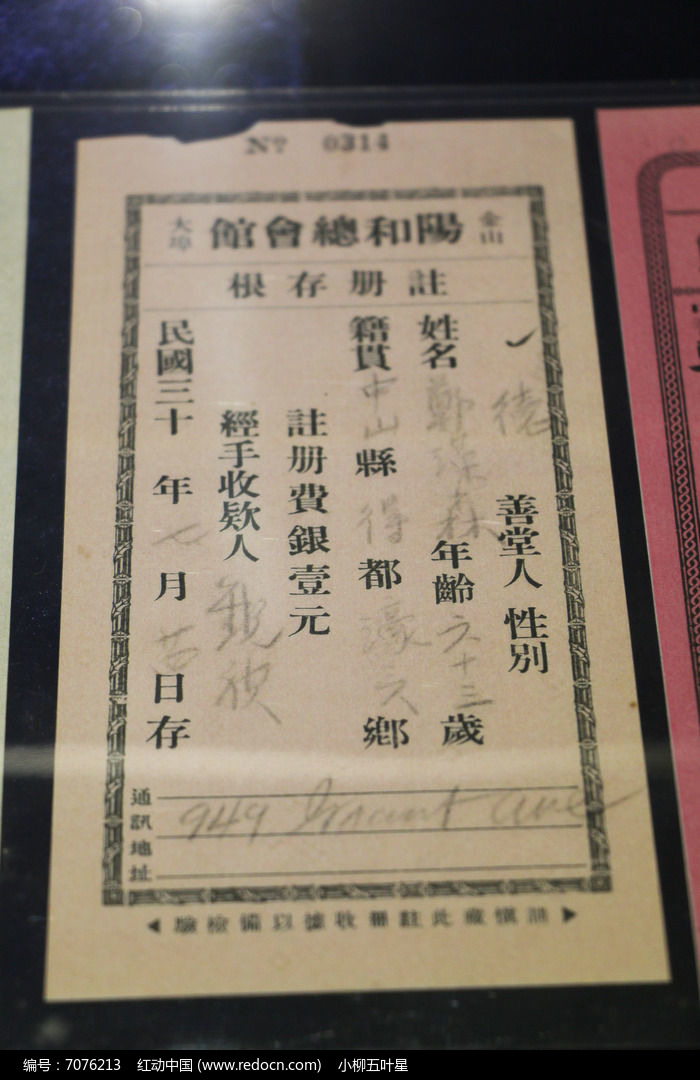 Nº 0314
金山 陽和總會館 大埠
註册存根
德善堂人 性別
姓名 鄭 森 年齡 六十三 歲
籍貫 中山 縣 得 都 濠 鄉
註册費銀壹元
經手收欵人
民國三十年 七 月 日存
通訊地址 949 Grant Ave
◀ 請慎藏此註册收據以備檢驗 ▶
编号：7076213 红动中国 (www.redocn.com) 小柳五叶星